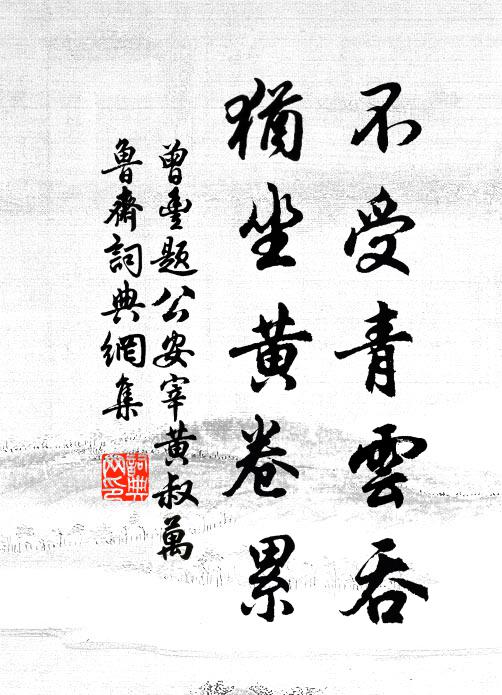 不受青雲吞
猶坐黃卷累
曾豐題公安宰黃叔萬
魯齋詞典網集
詞典網印